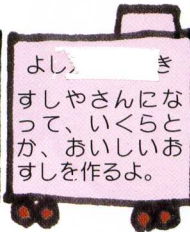 よし き
すしやさんにな
って、いくらと
か、おいしいお
すしを作るよ。